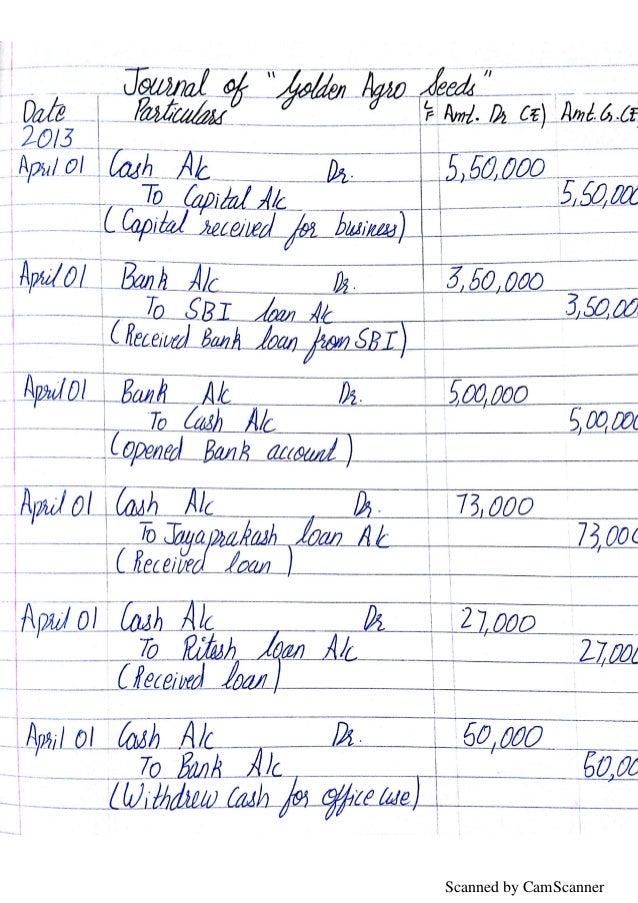 Journal of "Golden Agro Seeds"
Date Particulars LF Amt. Dr (₹) Amt. Cr. (₹
2013
April 01 Cash A/c Dr. 5,50,000
To Capital A/c 5,50,000
(Capital received for business)
April 01 Bank A/c Dr. 3,50,000
To SBI loan A/c 3,50,00
(Received Bank loan from SBI)
April 01 Bank A/c Dr. 5,00,000
To Cash A/c 5,00,000
(opened Bank account)
April 01 Cash A/c Dr. 73,000
To Jayaprakash loan A/c 73,000
(Received loan)
April 01 Cash A/c Dr 27,000
To Ritesh loan A/c 27,000
(Received loan)
April 01 Cash A/c Dr. 50,000
To Bank A/c 50,00
(Withdrew cash for office use)
Scanned by CamScanner